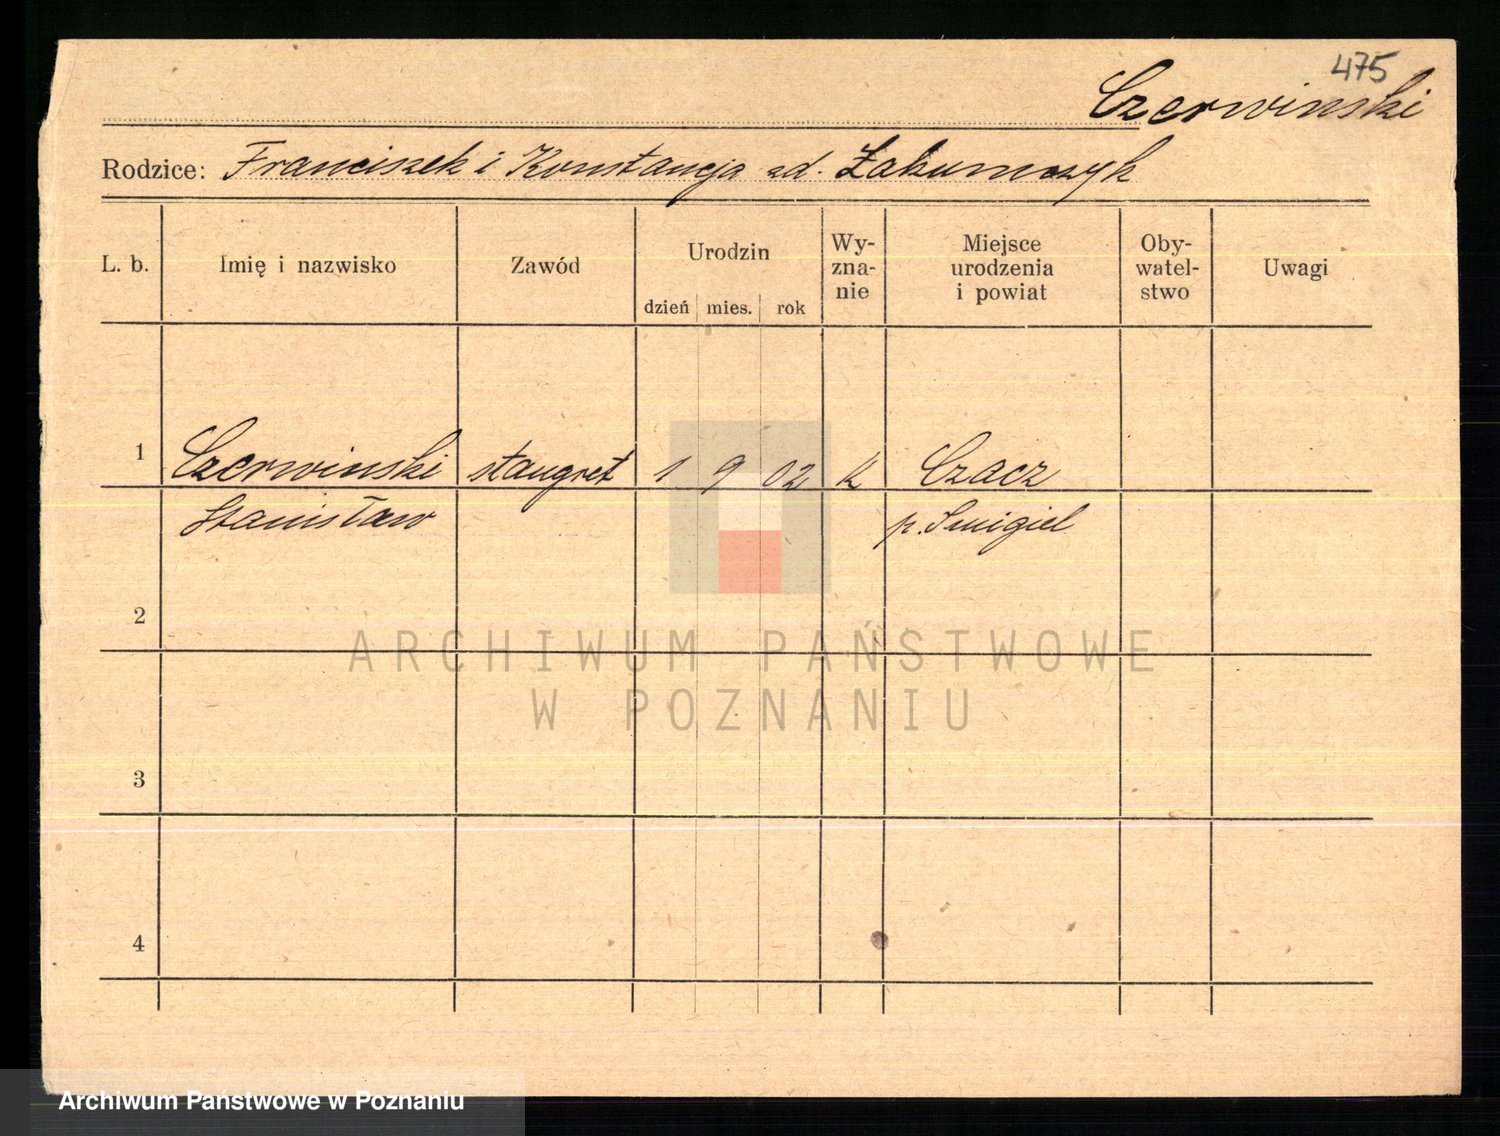 475
Czerwinski
Rodzice: Franciszek i Konstancja zd.
L. b. Imię i nazwisko Zawód Urodzin dzień mies. rok Wy-zna-nie Miejsce urodzenia i powiat Oby-watel-stwo Uwagi
1 Czerwinski stangret 1 9 02 k Czacz
Stanisław p. Smigiel
2
ARCHIWUM PAŃSTWOWE
W POZNANIU
3
4
Archiwum Państwowe w Poznaniu